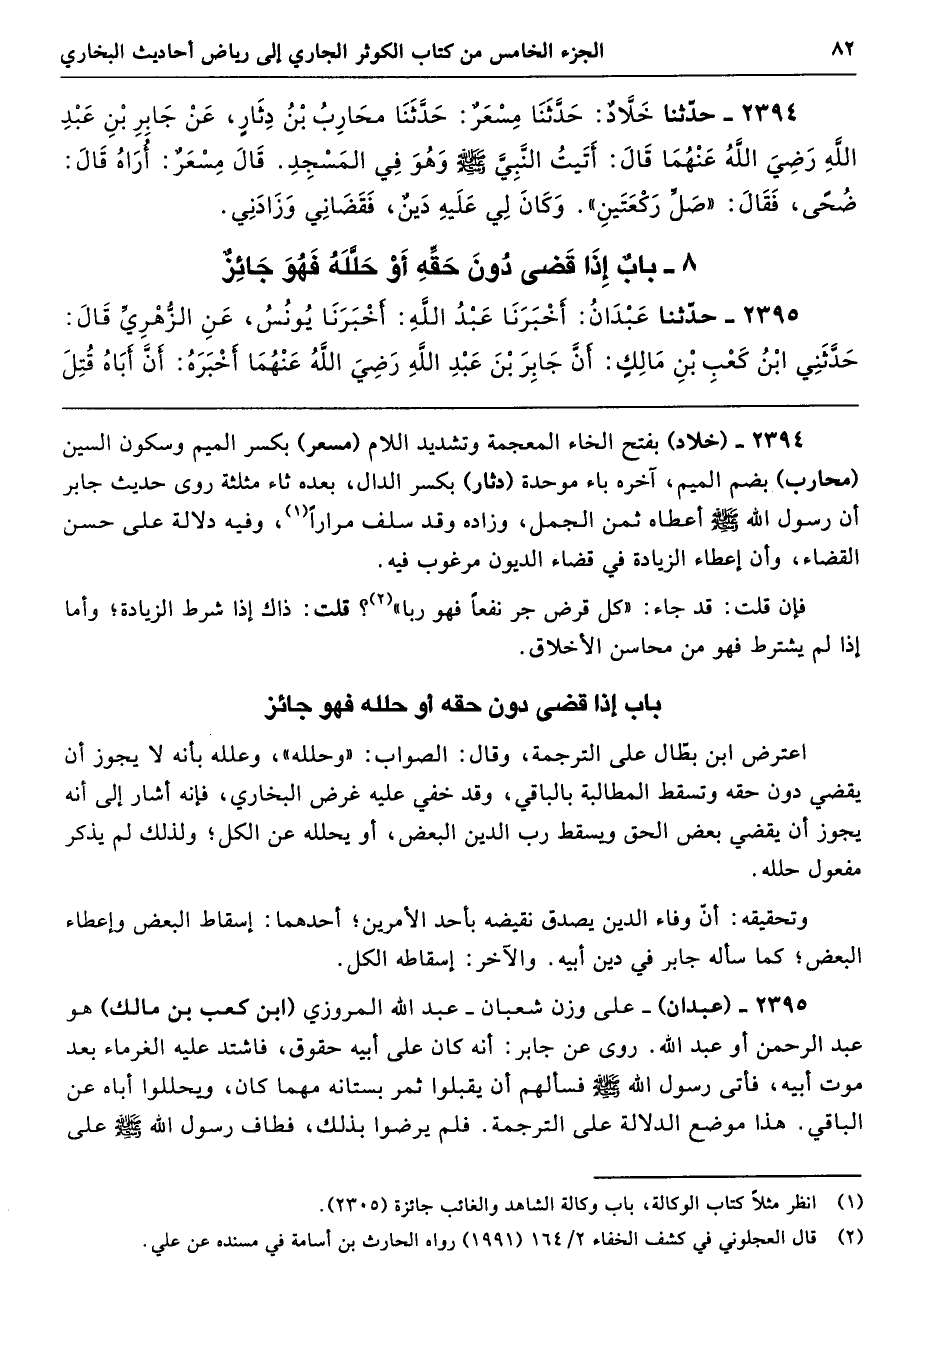 ٨٢ الجزء الخامس من كتاب الكوثر الجاري إلى رياض أحاديث البخاري
٢٣٩٤ ـ حدّثنا خَلَّادٌ: حَدَّثَنَا مِسْعَرٌ: حَدَّثَنَا محَارِبُ بْنُ دِثَارٍ، عَنْ جَابِرِ بْنِ عَبْدِ
اللَّهِ رَضِيَ اللَّهُ عَنْهُمَا قَالَ: أَتَيتُ النَّبِيَّ ﷺ وَهُوَ فِي المَسْجِدِ. قَالَ مِسْعَرٌ: أُرَاهُ قَالَ:
ضُحًى، فَقَالَ: «صَلِّ رَكْعَتَينِ». وَكَانَ لِي عَلَيهِ دَينٌ، فَقَضَانِي وَزَادَنِي.
٨ ـ بابٌ إِذَا قَضى دُونَ حَقِّهِ أَوْ حَلَّلَهُ فَهُوَ جَائِزٌ
٢٣٩٥ ـ حدّثنا عَبْدَانُ: أَخْبَرَنَا عَبْدُ اللَّهِ: أَخْبَرَنَا يُونُسُ، عَنِ الزُّهْرِيِّ قَالَ:
حَدَّثَنِي ابْنُ كَعْبِ بْنِ مَالِكٍ: أَنَّ جَابِرَ بْنَ عَبْدِ اللَّهِ رَضِيَ اللَّهُ عَنْهُمَا أَخْبَرَهُ: أَنَّ أَبَاهُ قُتِلَ
٢٣٩٤ ـ (خلاد) بفتح الخاء المعجمة وتشديد اللام (مسعر) بكسر الميم وسكون السين
(محارب) بضم الميم، آخره باء موحدة (دثار) بكسر الدال، بعده ثاء مثلثة روى حديث جابر
أن رسول الله ﷺ أعطاه ثمن الجمل، وزاده وقد سلف مراراً(١)، وفيه دلالة على حسن
القضاء، وأن إعطاء الزيادة في قضاء الديون مرغوب فيه.
فإن قلت: قد جاء: «كل قرض جر نفعاً فهو ربا»(٢)؟ قلت: ذاك إذا شرط الزيادة؛ وأما
إذا لم يشترط فهو من محاسن الأخلاق.
باب إذا قضى دون حقه أو حلله فهو جائز
اعترض ابن بطّال على الترجمة، وقال: الصواب: «وحلله»، وعلله بأنه لا يجوز أن
يقضي دون حقه وتسقط المطالبة بالباقي، وقد خفي عليه غرض البخاري، فإنه أشار إلى أنه
يجوز أن يقضي بعض الحق ويسقط رب الدين البعض، أو يحلله عن الكل؛ ولذلك لم يذكر
مفعول حلله.
وتحقيقه: أنّ وفاء الدين يصدق نقيضه بأحد الأمرين؛ أحدهما: إسقاط البعض وإعطاء
البعض؛ كما سأله جابر في دين أبيه. والآخر: إسقاطه الكل.
٢٣٩٥ ـ (عبدان) ـ على وزن شعبان ـ عبد الله المروزي (ابن كعب بن مالك) هو
عبد الرحمن أو عبد الله. روى عن جابر: أنه كان على أبيه حقوق، فاشتد عليه الغرماء بعد
موت أبيه، فأتى رسول الله ﷺ فسألهم أن يقبلوا ثمر بستانه مهما كان، ويحللوا أباه عن
الباقي. هذا موضع الدلالة على الترجمة. فلم يرضوا بذلك، فطاف رسول الله ﷺ على
(١) انظر مثلاً كتاب الوكالة، باب وكالة الشاهد والغائب جائزة (٢٣٠٥).
(٢) قال العجلوني في كشف الخفاء ٢/ ١٦٤ (١٩٩١) رواه الحارث بن أسامة في مسنده عن علي.